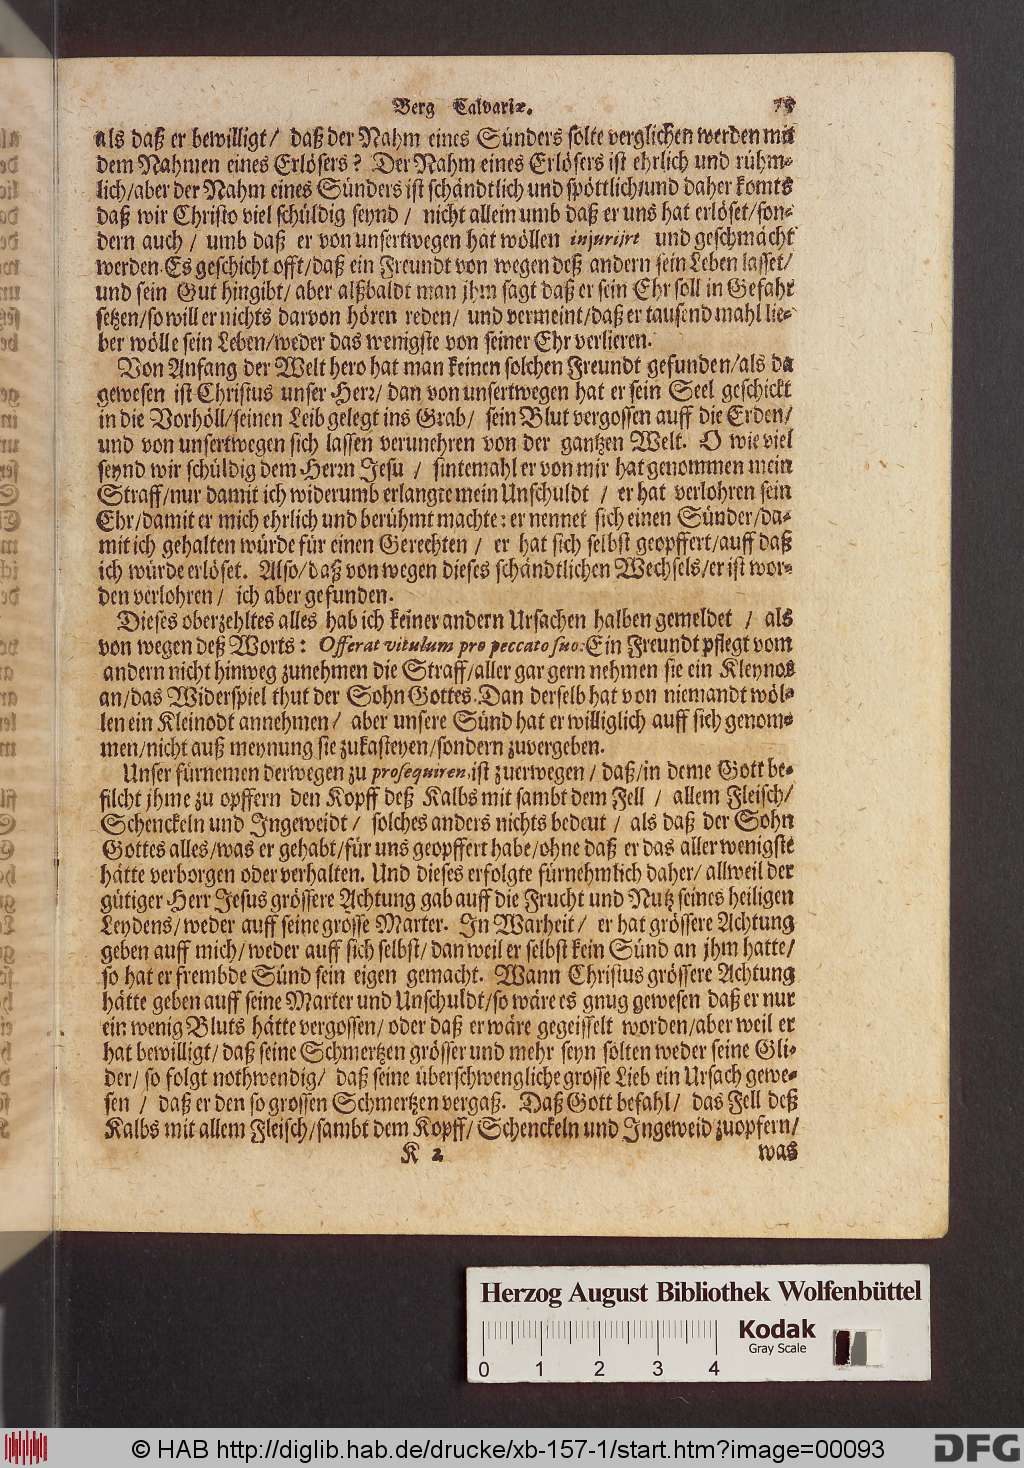 Berg Calvariæ. 75
als daß er bewilligt / daß der Nahm eines Sünders solte verglichen werden mit
dem Nahmen eines Erlösers? Der Nahm eines Erlösers ist ehrlich und rühm-
lich / aber der Nahm eines Sünders ist schändtlich und spöttlich / und daher komts
daß wir Christo viel schüldig seynd / nicht allein umb daß er uns hat erlöset / son-
dern auch / umb daß er von unsertwegen hat wöllen injurijrt und geschmächt
werden. Es geschicht offt / daß ein Freundt von wegen deß andern sein Leben lasset /
und sein Gut hingibt / aber alßbaldt man jhm sagt daß er sein Ehr soll in Gefahr
setzen / so will er nichts darvon hören reden / und vermeint / daß er tausend mahl lie-
ber wölle sein Leben / weder das wenigste von seiner Ehr verlieren.
Von Anfang der Welt hero hat man keinen solchen Freundt gefunden / als da
gewesen ist Christus unser Herr / dan von unsertwegen hat er sein Seel geschickt
in die Vorhöll / seinen Leib gelegt ins Grab / sein Blut vergossen auff die Erden /
und von unsertwegen sich lassen verunehren von der gantzen Welt. O wie viel
seynd wir schüldig dem Herrn Jesu / sintemahl er von mir hat genommen mein
Straff / nur damit ich widerumb erlangte mein Unschuldt / er hat verlohren sein
Ehr / damit er mich ehrlich und berühmt machte: er nennet sich einen Sünder / da-
mit ich gehalten würde für einen Gerechten / er hat sich selbst geopffert / auff daß
ich würde erlöset. Also / daß von wegen dieses schändtlichen Wechsels / er ist wor-
den verlohren / ich aber gefunden.
Dieses oberzehltes alles hab ich keiner andern Ursachen halben gemeldet / als
von wegen deß Worts: Offerat vitulum pro peccato suo: Ein Freundt pflegt vom
andern nicht hinweg zunehmen die Straff / aller gar gern nehmen sie ein Kleynos
an / das Widerspiel thut der Sohn Gottes. Dan derselb hat von niemandt wöl-
len ein Kleinodt annehmen / aber unsere Sünd hat er williglich auff sich genom-
men / nicht auß meynung sie zukasteyen / sondern zuvergeben.
Unser fürnemen derwegen zu prosequiren, ist zuerwegen / daß / in deme Gott be-
filcht jhme zu opffern den Kopff deß Kalbs mit sambt dem Fell / allem Fleisch /
Schenckeln und Jngeweidt / solches anders nichts bedeut / als daß der Sohn
Gottes alles / was er gehabt / für uns geopffert habe / ohne daß er das aller wenigste
hätte verborgen oder verhalten. Und dieses erfolgte fürnehmlich daher / allweil der
gütiger Herr Jesus grössere Achtung gab auff die Frucht und Nutz seines heiligen
Leydens / weder auff seine grosse Marter. Jn Warheit / er hat grössere Achtung
geben auff mich / weder auff sich selbst / dan weil er selbst kein Sünd an jhm hatte /
so hat er frembde Sünd sein eigen gemacht. Wann Christus grössere Achtung
hätte geben auff seine Marter und Unschuldt / so wäre es gnug gewesen daß er nur
ein wenig Bluts hätte vergossen / oder daß er wäre gegeisselt worden / aber weil er
hat bewilligt / daß seine Schmertzen grösser und mehr seyn solten weder seine Gli-
der / so folgt nothwendig / daß seine überschwengliche grosse Lieb ein Ursach gewe-
sen / daß er den so grossen Schmertzen vergaß. Daß Gott befahl / das Fell deß
Kalbs mit allem Fleisch / sambt dem Kopff / Schenckeln und Jngeweid zuopfern /
K 2 was
Herzog August Bibliothek Wolfenbüttel
Kodak
Gray Scale
0 1 2 3 4
© HAB http://diglib.hab.de/drucke/xb-157-1/start.htm?image=00093
DFG